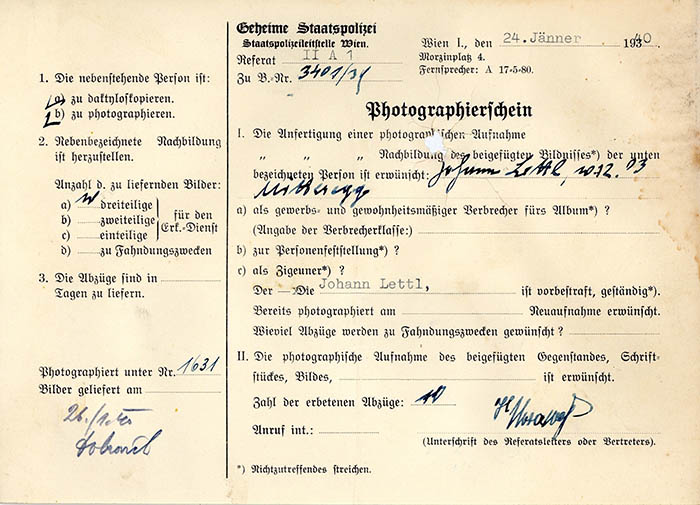 Geheime Staatspolizei
Staatspolizeileitstelle Wien.
Referat II A 1
Zu B.-Nr. 3401/39
Wien I., den 24. Jänner 1940
Morzinplatz 4.
Fernsprecher: A 17-5-80.
1. Die nebenstehende Person ist:
a) zu daktyloskopieren.
b) zu photographieren.
2. Nebenbezeichnete Nachbildung
ist herzustellen.
Anzahl d. zu liefernden Bilder:
a) dreiteilige
b) zweiteilige
c) einteilige
für den
Erk.-Dienst
d) zu Fahndungszwecken
3. Die Abzüge sind in
Tagen zu liefern.
Photographiert unter Nr. 1631
Bilder geliefert am
Photographierschein
I. Die Anfertigung einer photographischen Aufnahme
" " " Nachbildung des beigefügten Bildnisses*) der unten
bezeichneten Person ist erwünscht: Johann Lettl, 03
a) als gewerbs- und gewohnheitsmäßiger Verbrecher fürs Album*) ?
(Angabe der Verbrecherklasse:)
b) zur Personenfeststellung*) ?
c) als Zigeuner*) ?
Der — Die Johann Lettl, ist vorbestraft, geständig*).
Bereits photographiert am Neuaufnahme erwünscht.
Wieviel Abzüge werden zu Fahndungszwecken gewünscht ?
II. Die photographische Aufnahme des beigefügten Gegenstandes, Schrift-
stückes, Bildes, ist erwünscht.
Zahl der erbetenen Abzüge: 10
Anruf int.:
(Unterschrift des Referatsleiters oder Vertreters).
*) Nichtzutreffendes streichen.